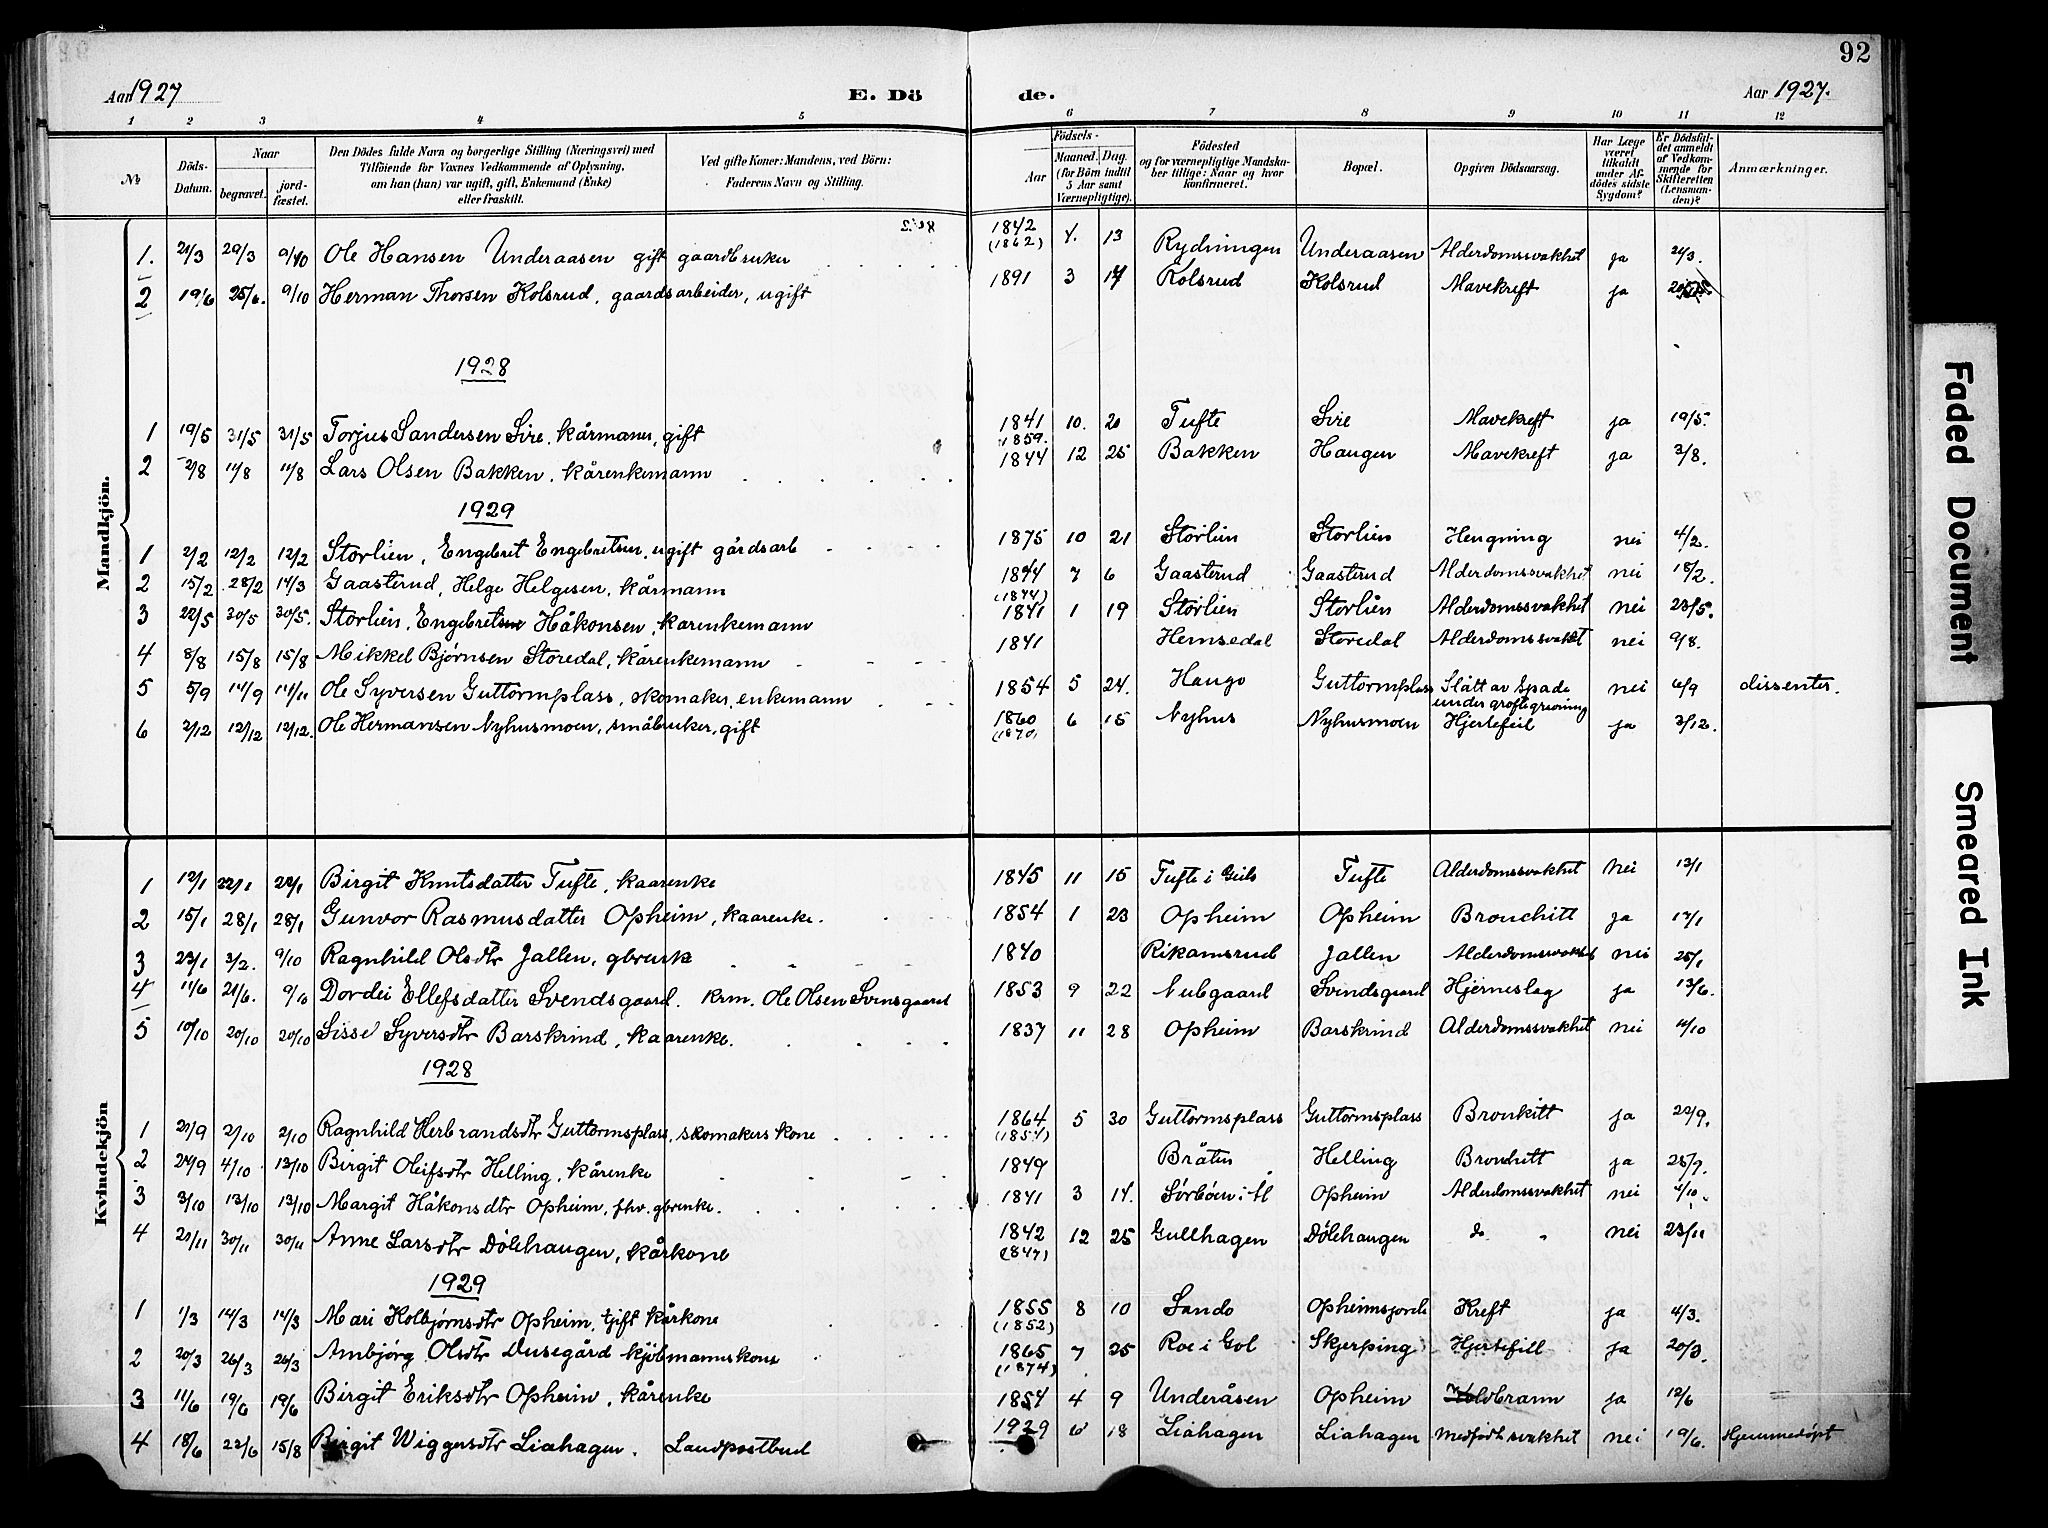 92
Aar 1927
E. Dö
de.
Aar 1927.
1 2 3 4 5 6 7 8 9 10 11 12
No
Döds-Datum.
Naar
begravet.
jord-fæstet.
Den Dödes fulde Navn og borgerlige Stilling (Næringsvei) med
Tilföiende for Voxnes Vedkommende af Oplysning,
om han (hun) var ugift, gift, Enkemand (Enke)
eller fraskilt.
Ved gifte Koner: Mandens, ved Börn:
Faderens Navn og Stilling.
Födsels-
Aar
Maaned. Dag
(for Börn indtil
5 Aar samt
Værnepligtige).
Födested
og for værnepligtige Mandska-
ber tillige: Naar og hvor
konfirmeret.
Bopæl.
Opgiven Dödsaarsag.
Har Læge
været
tilkaldt
under Af-
dödes sidste
Sygdom?
Er Dödsfal-
det anmeldt
af Vedkom-
mende for
Skifteretten
(Lensman-
den)?
Anmærkninger.
Mandkjön.
1. 21/3 29/3 9/10 Ole Hansen Underaasen gift gaardbruker 1842 (1862) 4. 13 Rydningen Underaasen Alderdomssvakhet ja 24/3.
2 19/6 25/6. 9/10 Herman Thorsen Kolsrud, gaardsarbeider, ugift 1891 3 17 Kolsrud Kolsrud Mavekreft ja
1928
1 19/5 31/5 31/5 Torjus Sandersen Sire, kårmann, gift 1841 (1859. 10. 20 Tufte Sire Mavekreft ja 19/5.
2 2/8 11/8 11/8 Lars Olsen Bakken, kårenkemann 1844 12 25 Bakken Haugen Mavekreft ja 3/8.
1929
1 2/2 12/2 12/2 Storlien, Engebret Engebretsen, ugift gårdsarb 1875 10 21 Storlien Storlien Hengning nei 4/2.
2 15/2 28/2 14/3 Gaasterud, Helge Helgesen, kårmann 1844 (1844) 7 6 Gaasterud Gaasterud Alderdomssvakhet nei 18/2.
3 22/5 30/5 30/5. Storlien, Engebret Håkonsen, kårenkemann 1841 1 19 Storlien Storlien Alderdomssvakhet nei 23/5.
4 8/8 15/8 15/8 Mikkel Bjørnsen Storedal, kårenkemann 1841 Hemsedal Storedal Alderdomssvakhet nei 9/8.
5 5/9 14/9 14/11 Ole Syversen Guttormplass, skomaker, enkemann 1854 5 24. Haugo Guttormplass Slått av spade under grøftegravning nei 6/9 dissenter.
6 2/12 12/12 12/12. Ole Hermansen Nyhusmoen, småbruker, gift 1860 (1870) 6 15 Nyhus Nyhusmoen Hjertefeil ja 3/12.
Kvindekjön
1 12/1 22/1 22/1 Birgit Knutsdatter Tufte, kaarenke 1845 11 15 Tufte i Guls Tufte Alderdomssvakhet nei 13/1
2 15/1 28/1 28/1 Gunvor Rasmusdatter Opheim, kaarenke. 1854 1 23 Opheim Opheim Bronchitt ja 17/1
3 23/1 3/2. 9/10 Ragnhild Olsdtr Jallen, gbrenke 1840 Rikamsrud Jallen Alderdomssvakhet nei 25/1
4 11/6 21/6. 9/10 Dordei Ellefsdatter Svendsgaard. krm. Ole Olsen Svensgaard 1853 9 22 Nubgaard Svindsgaard Hjerneslag ja 13/6.
5 10/10 20/10 20/10 Sisse Syversdtr Barskrind, kaarenke. 1837 11 28 Opheim Barskrind Alderdomssvakhet nei 11/10
1928
1 21/9 2/10 2/10 Ragnhild Herbrandsdtr Guttormsplass, skomakers kone 1864 (1854) 5 30 Guttormsplass Guttormsplass Bronkitt ja 22/9.
2 24/9 4/10 13/10 Birgit Oleifsdtr Helling, kårenke 1849 Bråten Helling Bronkitt ja 25/9.
3 3/10 13/10 13/10 Margit Håkonsdtr Opheim, fhv. gbrenke. 1841 3 14. Sørbøen i Ål Opheim Alderdomssvakhet nei 4/10.
4 21/11 30/11 30/11 Anne Larsdtr Dölehaugen, kårkone 1842 (1847) 12 25 Gullhagen Dölehaugen do " nei 23/11
1929
1 1/3 14/3 14/3 Mari Kolbjørnsdtr Opheim, Gift kårkone 1855 (1852) 8 10 Sando Opheimsjorde Kreft ja 4/3.
2 20/3 26/3 26/3 Ambjørg Olsdtr Dusegård kjöbmannskone 1865 (1874) 7 25 Roe i Gol Skjerping Hjertefeill ja 20/3.
3 11/6 19/6 19/6 Birgit Eriksdtr Opheim, kårenke 1854 4 9 Underåsen Opheim Koldbrann ja 12/6
4 18/6 22/6 15/8 Birgit Wiggersdtr Liahagen. Landpostbud 1929 6 18 Liahagen Liahagen Medfødt svakhet nei 19/6. Hjemmedøpt
Faded Document
Smeared Ink